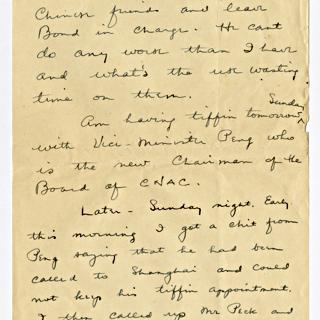 Chinese friends and leave
Bond in charge. He cant
do any worse than I have
and what's the use wasting
time on them.
Sunday
Am having tiffin tomorrow ^
with Vice-Minister Peng who
is the new Chairman of the
Board of CNAC.
Later - Sunday night. Early
this morning I got a chit from
Peng saying that he had been
called to Shanghai and could
not keep his tiffin appointment.
I then called up Mr Peck and